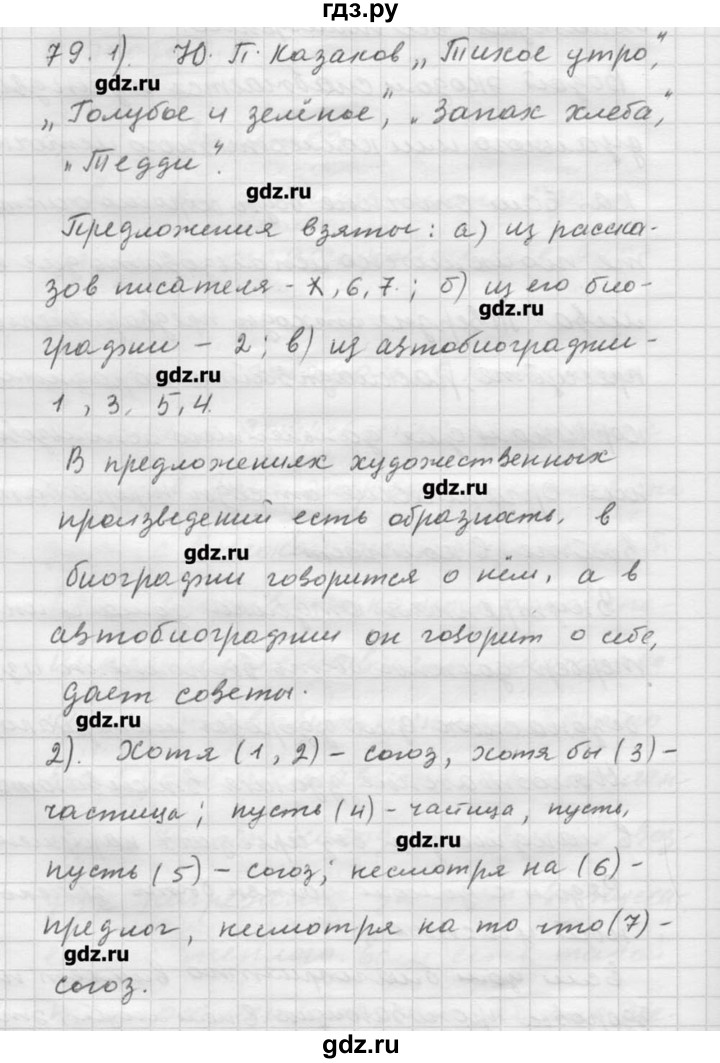 гдз.ру
79. 1). Ю. П. Казаков „Тихое утро",
gdz.ru
„Голубое и зелёное", „Запах хлеба",
„Тедди".
gdz.ru
Предложения взяты: а) из расска-
зов писателя - 6, 7.; б) из его био-
gdz.ru
графии - 2; в) из автобиографии -
gdz.ru
1, 3, 5, 4.
В предложениях художественных
gdz.ru
произведений есть образность, в
gdz.ru
биографии говорится о нём, а в
автобиографии он говорит о себе,
дает советы.
gdz.ru
2). Хотя (1, 2) - союз, хотя бы (3) -
частица; пусть (4) - частица, пусть,
gdz.ru
пусть (5) - союз; несмотря на (6) -
предлог, несмотря на то что (7) -
gdz.ru
союз.
gdz.ru